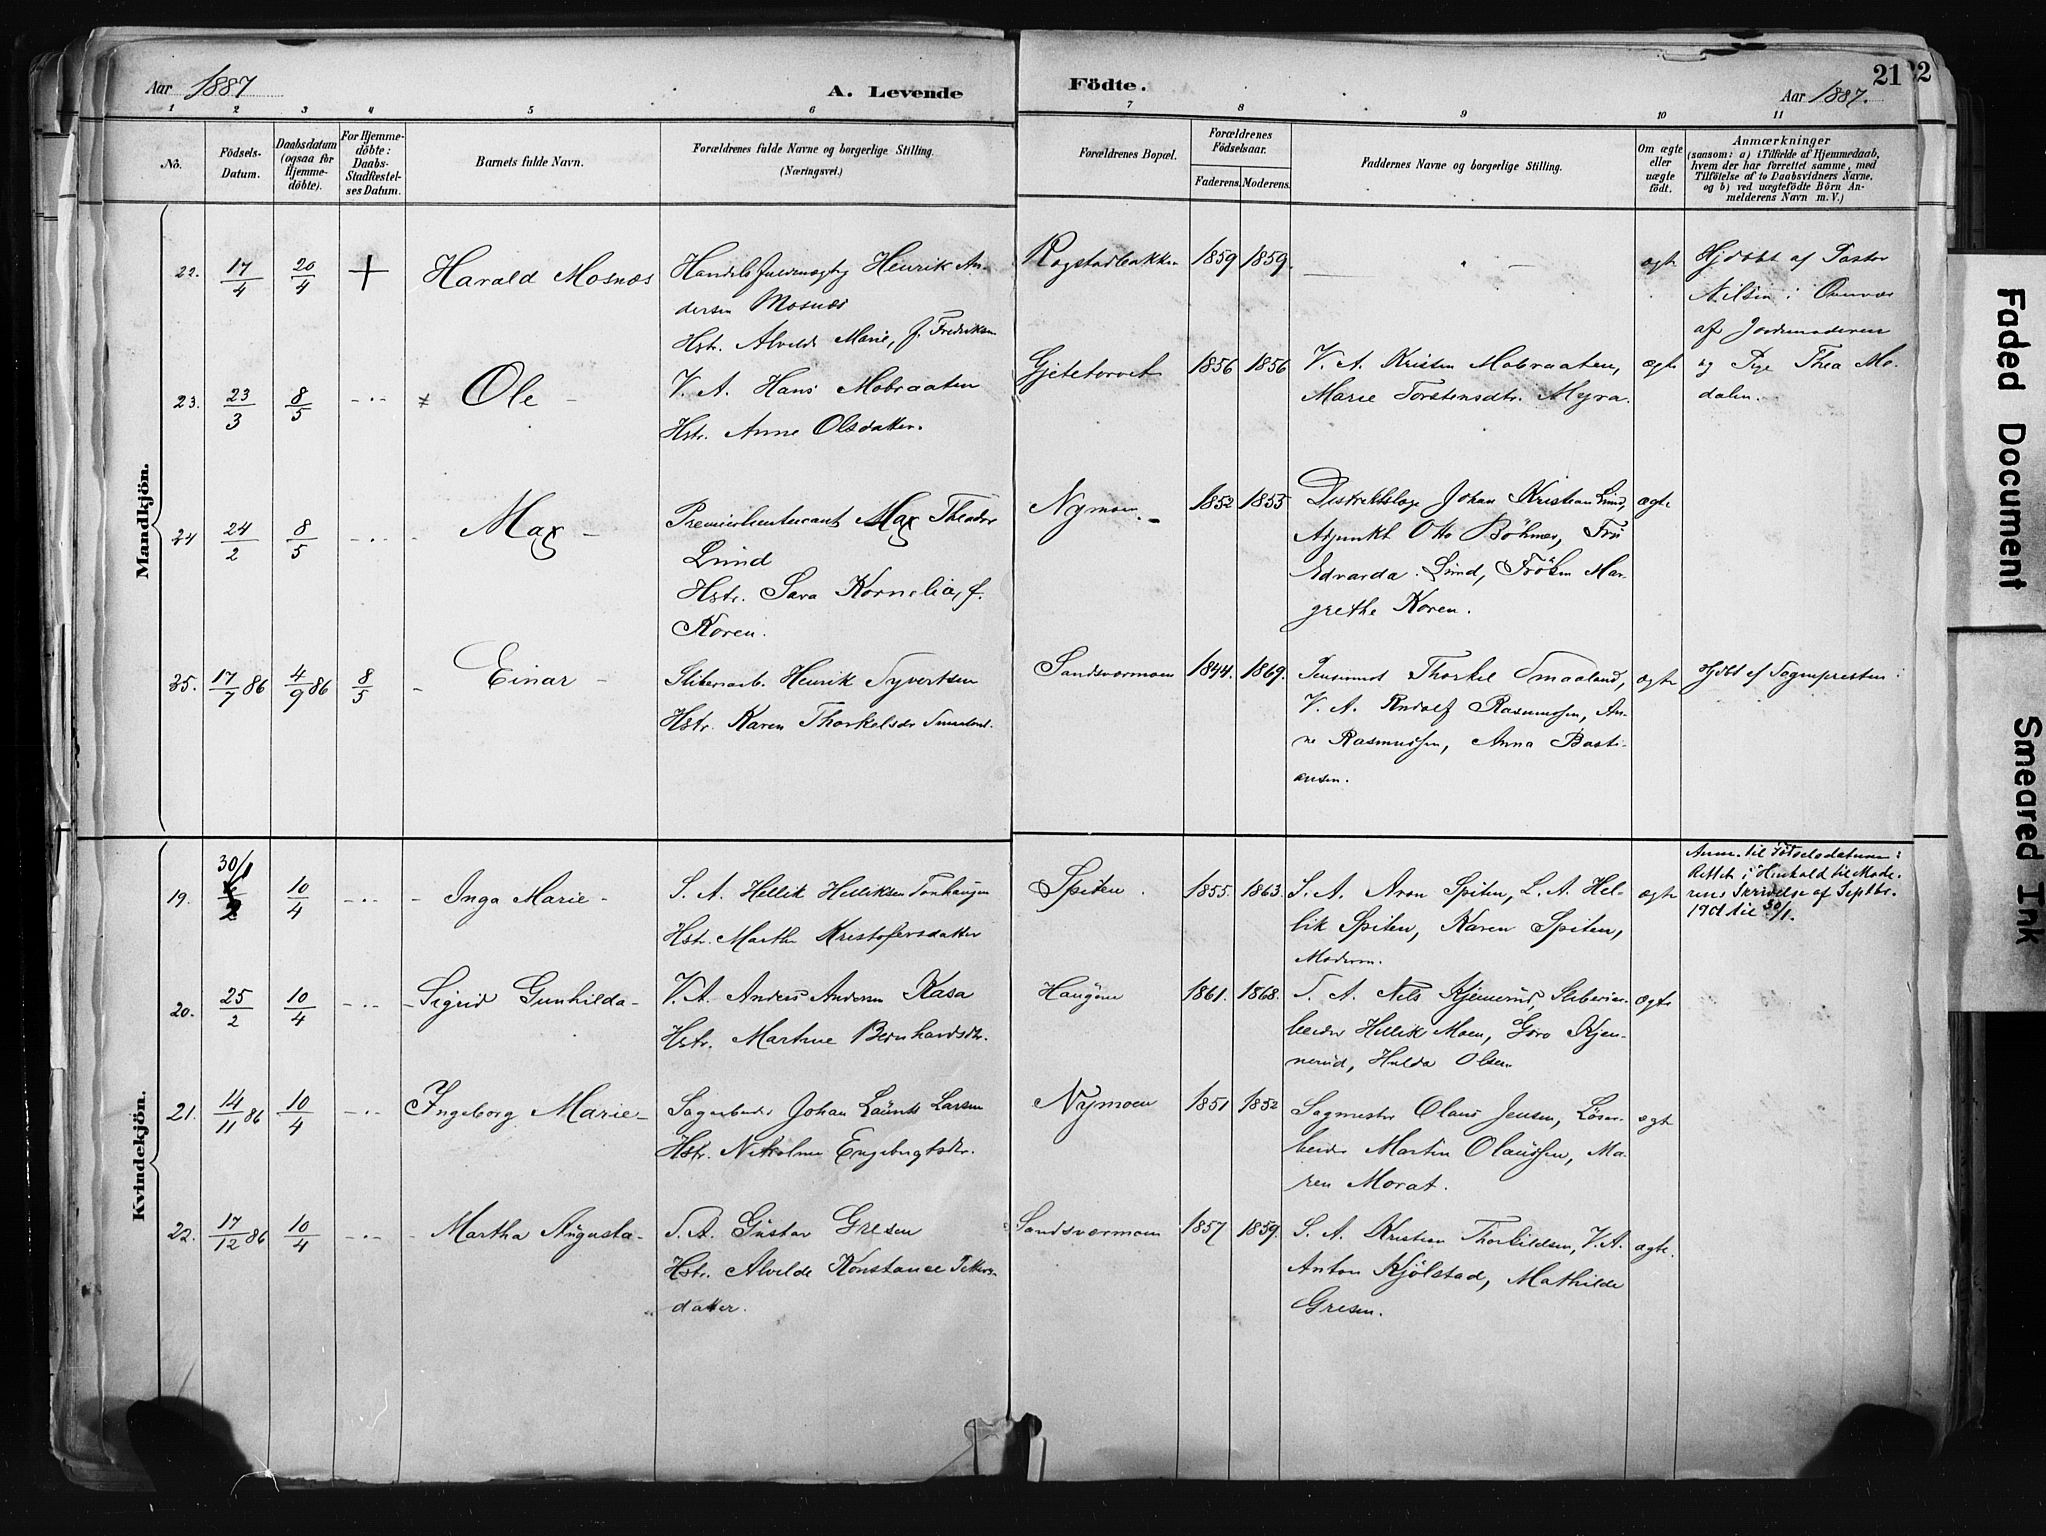 Aar 1887
A. Levende
Födte.
21
22
Aar 1887.
1 2 3 4 5 6 7 8 9 10 11
No.
Födsels-
Datum.
Daabsdatum
(ogsaa for
Hjemme-
döbte).
For Hjemme-
döbte:
Daabs-
Stadfæstel-
ses Datum.
Barnets fulde Navn.
Forældrenes fulde Navne og borgerlige Stilling.
(Næringsvei.)
Forældrenes Bopæl.
Forældrenes
Födselsaar.
Faderens. Moderens.
Faddernes Navne og borgerlige Stilling.
Om ægte
eller
uægte
födt.
Anmærkninger
(saasom: a) i Tilfælde af Hjemmedaab,
hvem der har forrettet samme, med
Tilföielse af to Daabsvidners Navne,
og b) ved uægtefödte Börn An-
melderens Navn m. V.)
Mandkjön.
22. 17/4 20/4 + Harald Mosnæs
Handelsfuldmægtig Henrik An-
dersen Mosnæs
Hstr. Alvilde Marie, f. Fredriksen
Rogstadbakken 1859 1859. — " — ægte
Hjdöbt af Pastor
Nilsen i
af Jordemoderen
og Pige Thea Mo-
dalen.
23. 23/3 8/5 - " - Ole -
V. A. Hans Mobraaten
Hstr. Anne Olsdatter.
Gjetetorvet 1856 1856
V. A. Kristen Mobraaten,
Marie Torstensdtr. Myra.
ægte
24 24/2 8/5 - " - Max -
Premierlieutenant Max Theodor
Lund
Hstr. Sara Kornelia, f.
Koren.
Nymoen. 1852 1855
Distriktslæge Johan Kristian Lund,
Adjunkt Otto Böhmer, Fru
Edvarda Lund, Fröken Mar-
grethe Koren.
ægte
25. 17/7 86 4/9 86 8/5 - Einar -
Sliberiarb. Henrik Syvertsen
Hstr. Karen Thorkelsdr Smaaland.
Sandsværmoen 1844. 1869.
Pensionist Thorkel Smaaland,
V. A. Rudolf Rasmussen, An-
ne Rasmussen, Anna Basti-
ansen.
ægte
Hjdbt af Sognepresten
Kvindekjön.
19. 30/1 10/4 - " - Inga Marie -
S. A. Hellik Helliksen Tonhaugen
Hstr. Marthe Kristofersdatter
Spiten. 1855. 1863.
S. A. Aron Spiten, L. A. Hel-
lik Spiten, Karen Spiten,
Moderen.
ægte
Anm. til Födselsdatum:
Rettet i Henhold til Mode-
rens Skrivelse af Septbr.
1901 til 30/1.
20. 25/2 10/4 - " - Sigrid Gunhilda -
V. A. Anders Andersen Kasa
Hstr. Martine Bernhardsdtr.
Haugene 1861. 1868.
S. A. Nils Kjennerud, Sliberiar-
beider Hellik Moen, Goro Kjen-
nerud, Hulda Olsen
ægte
21. 14/11 86 10/4 - " - Yngeborg Marie -
Sagarbeider Johan Lauritz Larsen
Hstr. Nikoline Engebrigtsdtr.
Nymoen 1851 1852
Sagmester Olaus Jensen, Løsar-
beider Martin Olaussen, Ma-
ren Morat.
ægte
22. 17/12 86 10/4 - " - Martha Augusta -
S. A. Gustav Gresen
Hstr. Alvilde Konstanse Petters-
datter.
Sandsværmoen 1857 1859.
S. A. Kristian Thorkildsen, V. A.
Anton Kjölstad, Mathilde
Gresen.
ægte.
Faded Document
Smeared Ink